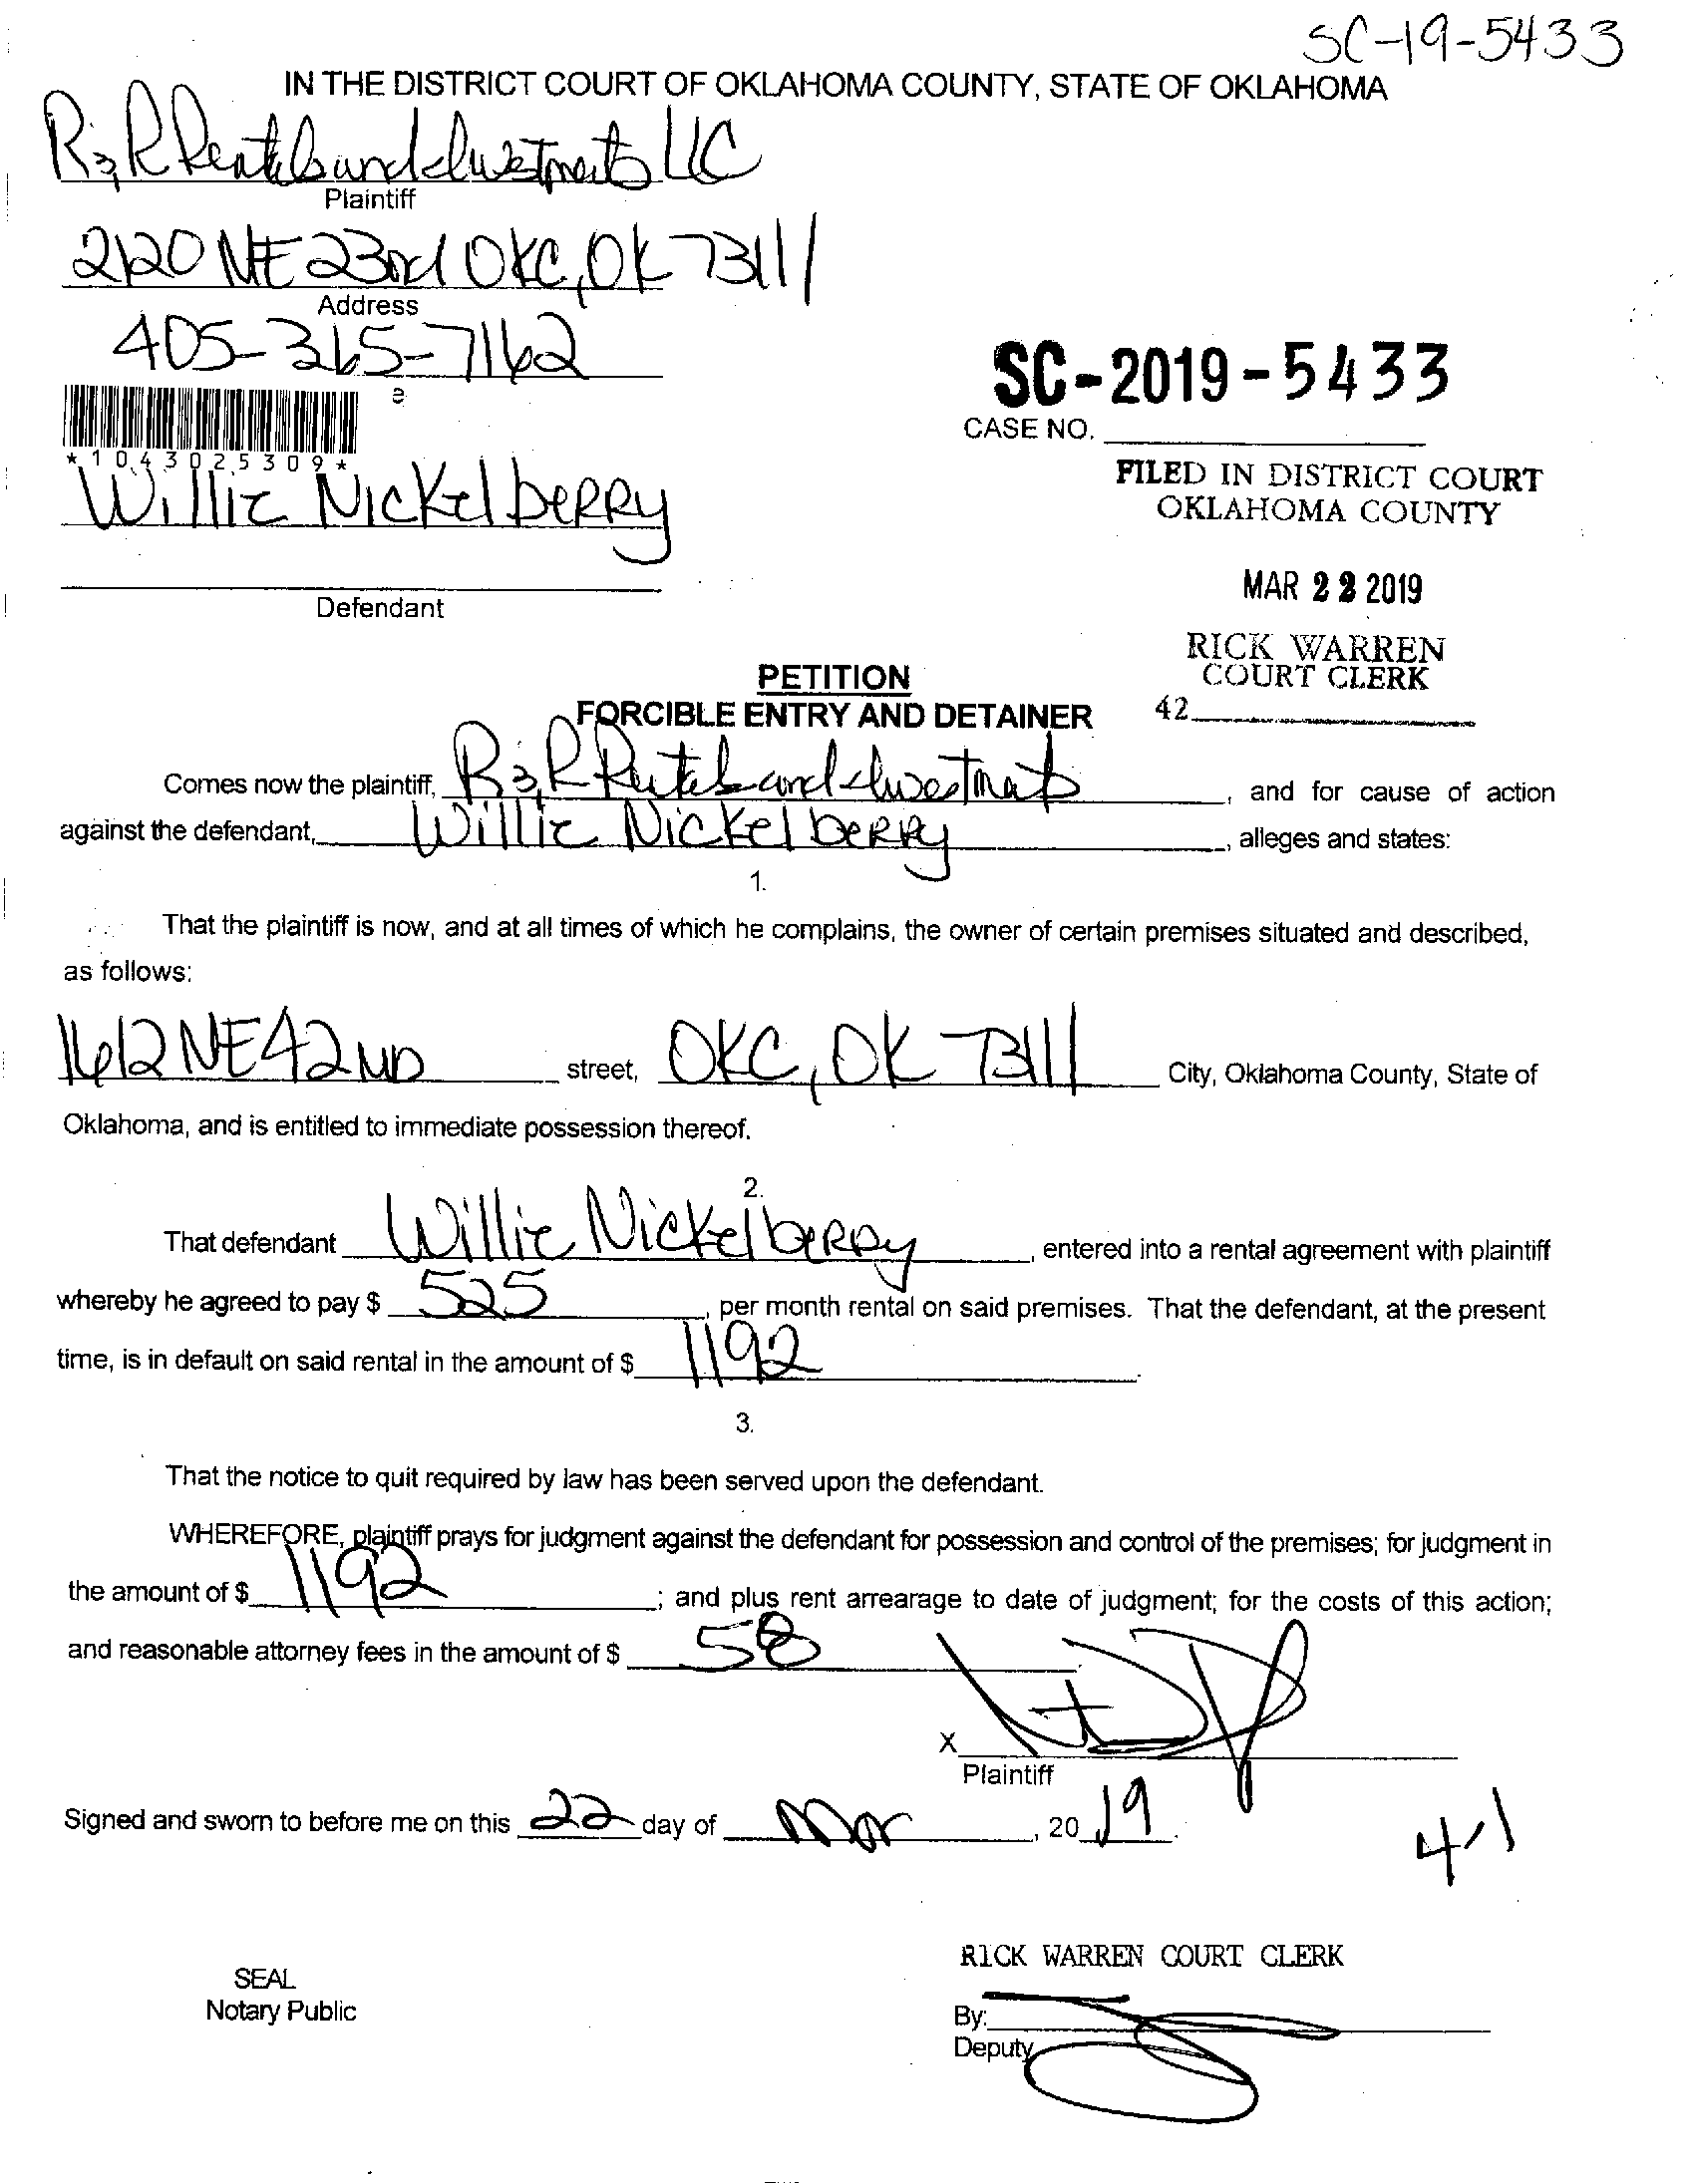 SC-19-5433
IN THE DISTRICT COURT OF OKLAHOMA COUNTY, STATE OF OKLAHOMA
R&R Rentals and Investments LLC
Plaintiff
2120 NE 23rd OKC, OK 73111
Address
405-365-7162
e
SC-2019-5433
CASE NO.
*1043025309*
FILED IN DISTRICT COURT
OKLAHOMA COUNTY
Willie Nickelberry
Defendant
MAR 22 2019
RICK WARREN
COURT CLERK
42
PETITION
FORCIBLE ENTRY AND DETAINER
Comes now the plaintiff, R&R Rentals and Investments, and for cause of action
against the defendant, Willie Nickelberry, alleges and states:
1.
That the plaintiff is now, and at all times of which he complains, the owner of certain premises situated and described,
as follows:
1612 NE 42ND street, OKC, OK 73111 City, Oklahoma County, State of
Oklahoma, and is entitled to immediate possession thereof.
2.
That defendant Willie Nickelberry, entered into a rental agreement with plaintiff
whereby he agreed to pay $ 525, per month rental on said premises. That the defendant, at the present
time, is in default on said rental in the amount of $ 1192.
3.
That the notice to quit required by law has been served upon the defendant.
WHEREFORE, plaintiff prays for judgment against the defendant for possession and control of the premises; for judgment in
the amount of $ 1192; and plus rent arrearage to date of judgment; for the costs of this action;
and reasonable attorney fees in the amount of $ 58
X
Plaintiff
Signed and sworn to before me on this 22 day of Mar, 20 19.
4-1
RICK WARREN COURT CLERK
SEAL
Notary Public
By:
Deputy